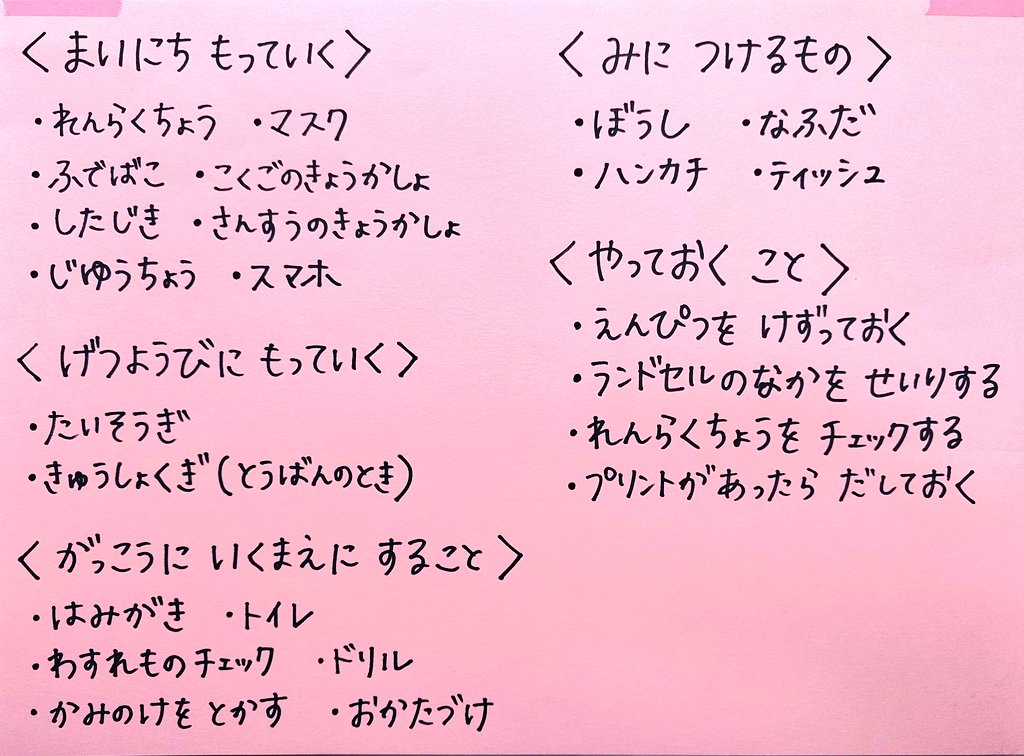 〈まいにち もっていく〉
・れんらくちょう ・マスク
・ふでばこ ・こくごのきょうかしょ
・したじき ・さんすうのきょうかしょ
・じゆうちょう ・スマホ
〈げつようびに もっていく〉
・たいそうぎ
・きゅうしょくぎ(とうばんのとき)
〈がっこうに いくまえに すること〉
・はみがき ・トイレ
・わすれものチェック ・ドリル
・かみのけを とかす ・おかたづけ
〈みに つけるもの〉
・ぼうし ・なふだ
・ハンカチ ・ティッシュ
〈やっておく こと〉
・えんぴつを けずっておく
・ランドセルのなかを せいりする
・れんらくちょうを チェックする
・プリントがあったら だしておく